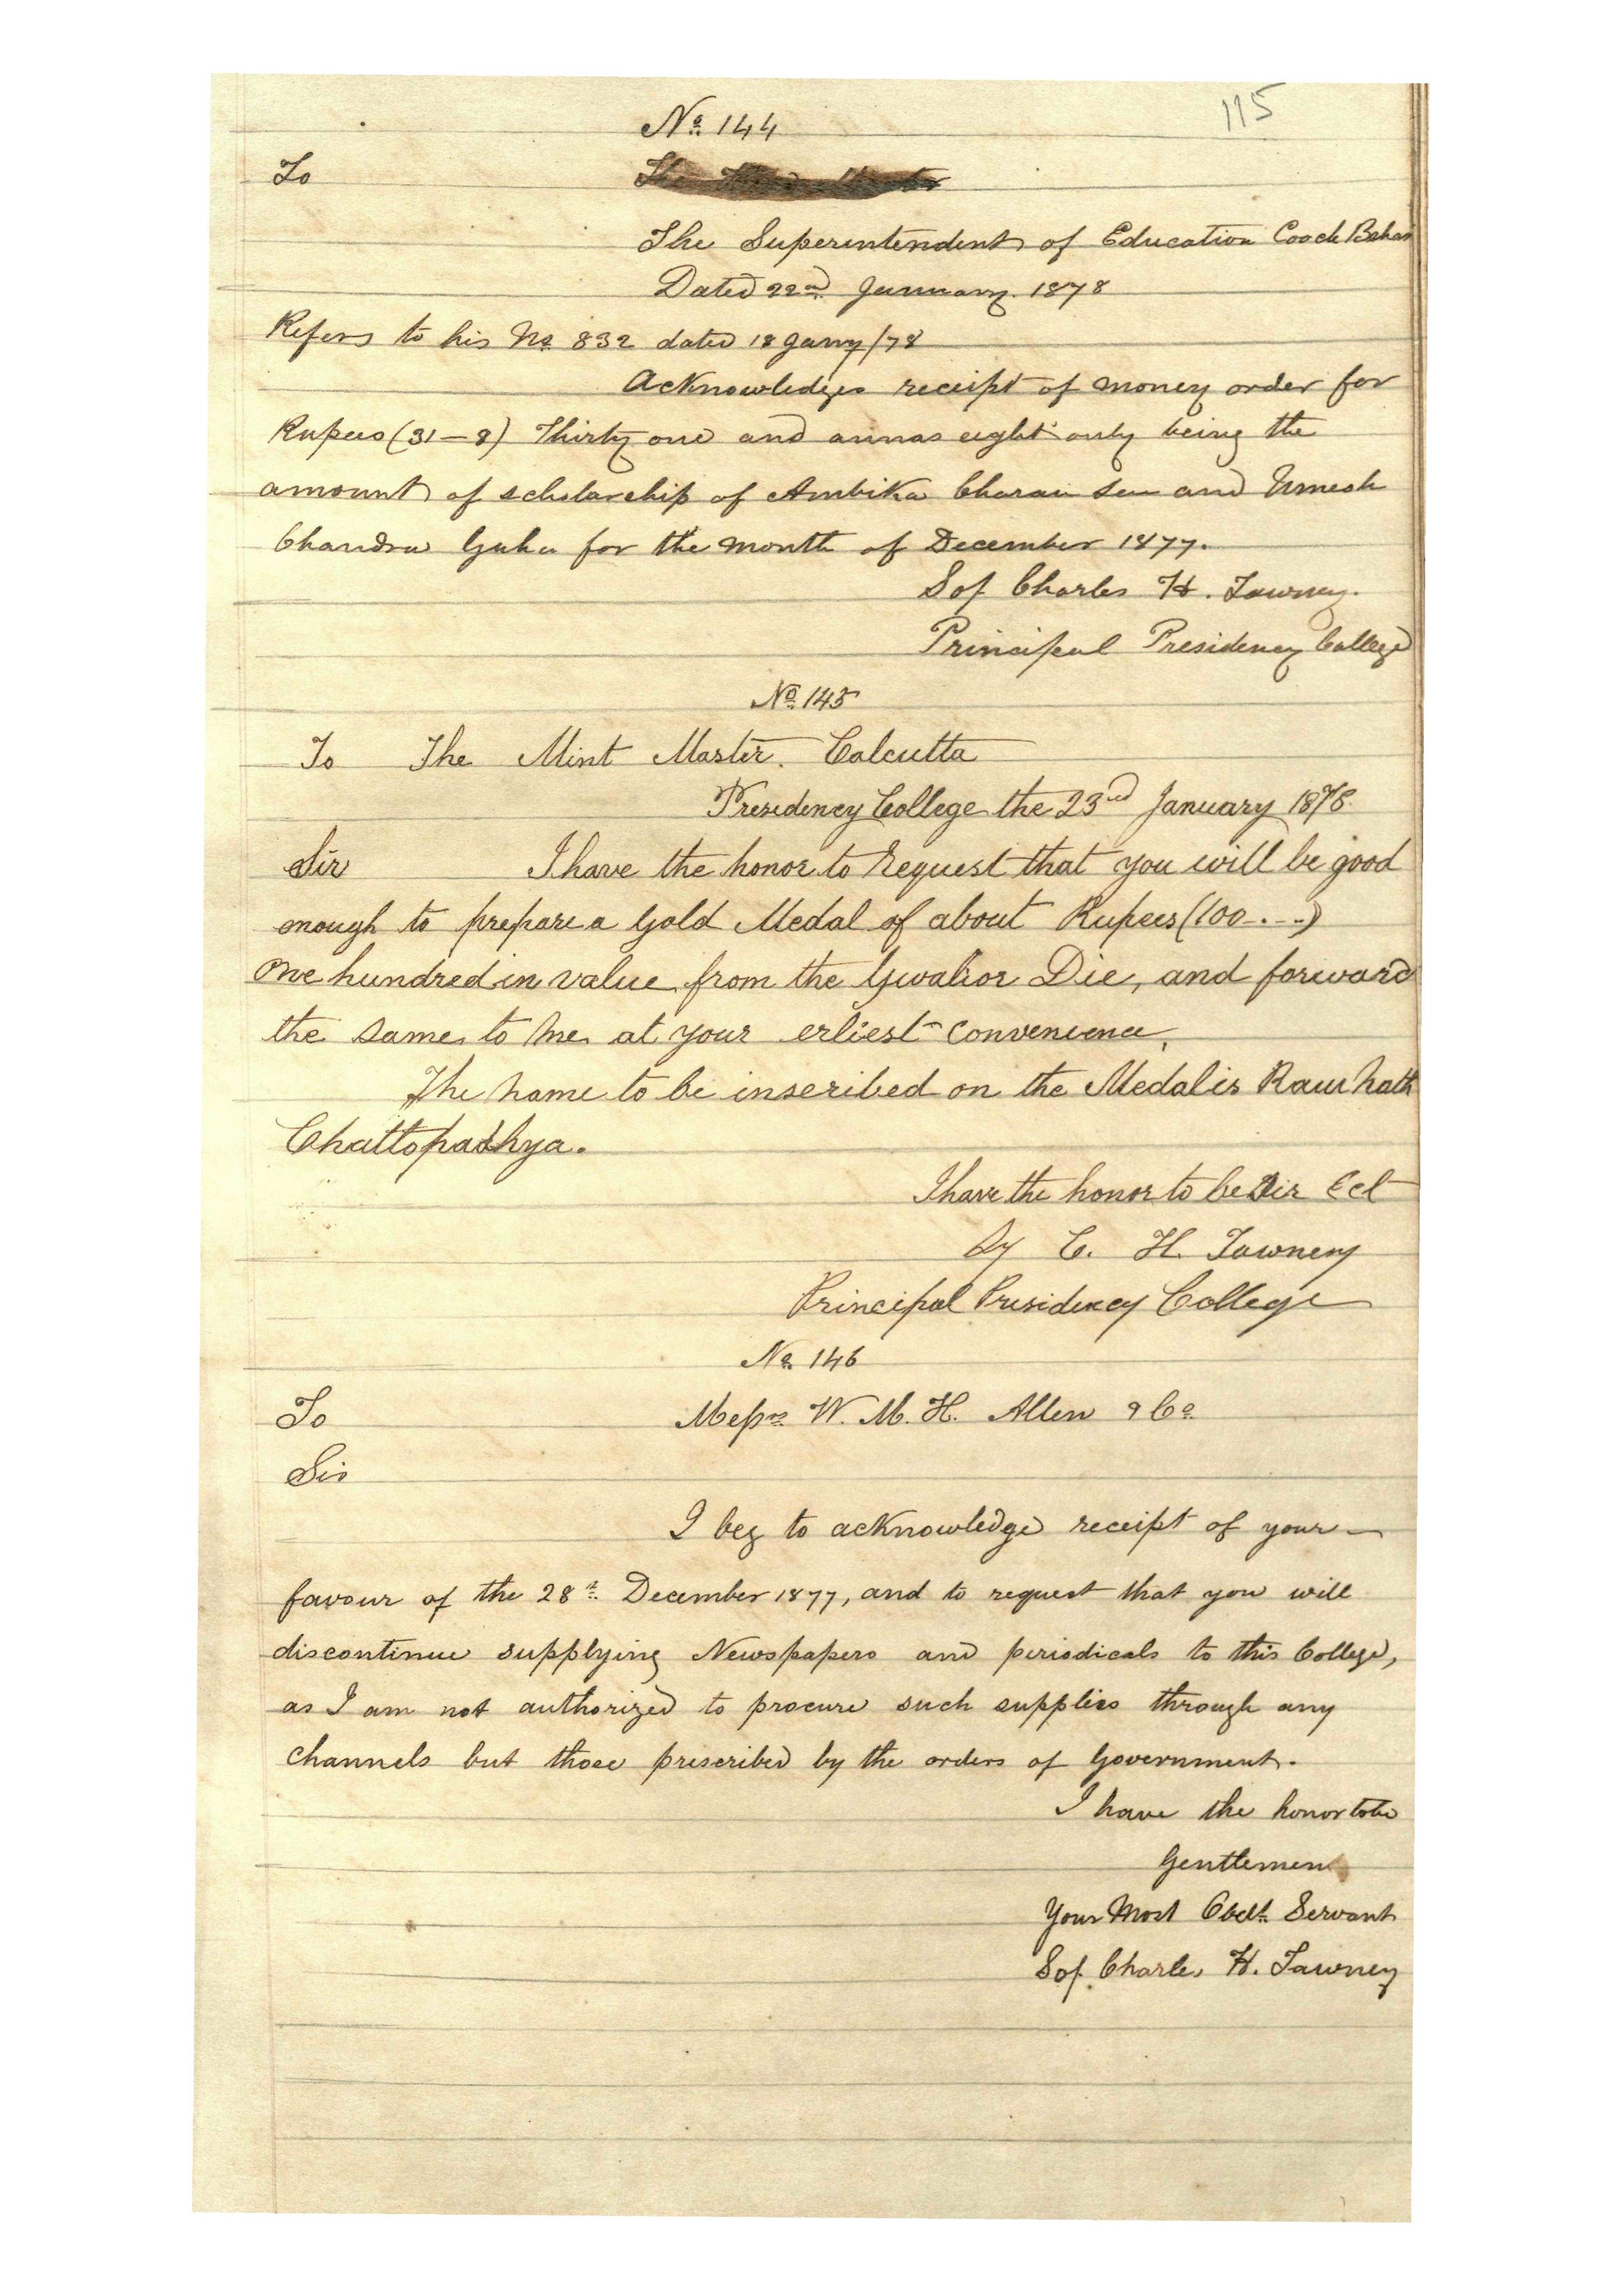 115
No. 144
To
The Superintendent of Education Cooch Behar
Dated 22nd January. 1878
Refers to his No 832 dated 18 Jany/78
Acknowledges receipt of money order for
Rupees (31–8) Thirty one and annas eight only being the
amount of scholarship of Ambika Charan Sen and Umesh
Chandra Guha for the month of December 1877.
Charles H. Tawney.
Principal Presidency College
No. 145
To The Mint Master. Calcutta
Presidency College the 23rd January 1878.
Sir I have the honor to request that you will be good
enough to prepare a Gold Medal of about Rupees (100 . - -)
One hundred in value from the Gwalior Die, and forward
the same to me at your erliest convenience.
The name to be inscribed on the Medal is Ram Nath
Chattopadhya.
I have the honor to be Sir Ect
C. H. Tawney
Principal Presidency College
No. 146
To Messrs W. M. H. Allen & Co.
Sir
I beg to acknowledge receipt of your –
favour of the 28th December 1877, and to request that you will
discontinue supplying Newspapers and periodicals to this College,
as I am not authorized to procure such supplies through any
channels but those prescribed by the orders of Government.
I have the honor to be
Gentlemen
Your Most Obedt. Servant
Charles H. Tawney